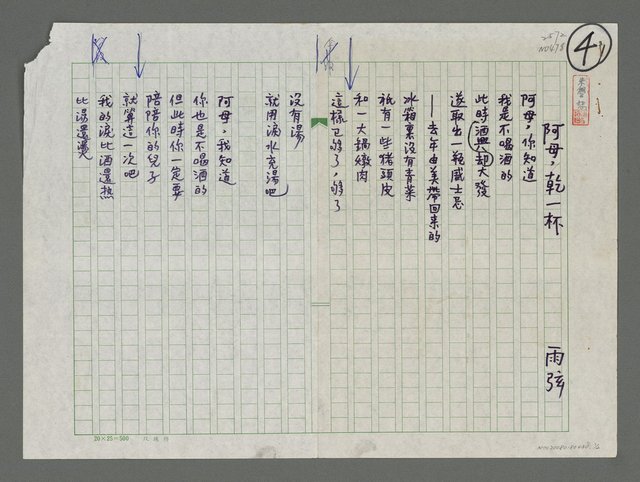 4
2572
阿母，乾一杯
雨弦
阿母，你知道
我是不喝酒的
此時酒興卻大發
遂取出一瓶威士忌
──去年由美帶回來的
冰箱裏沒有青菜
祇有一些豬頭皮
和一大鍋燉肉
這樣已夠了，夠了
沒有湯
就用滴水充湯吧
阿母，我知道
你也是不喝酒的
但此時你一定要
陪陪你的兒子
就算這一次吧
我的淚比酒還熱
比湯還燙
20×25=500